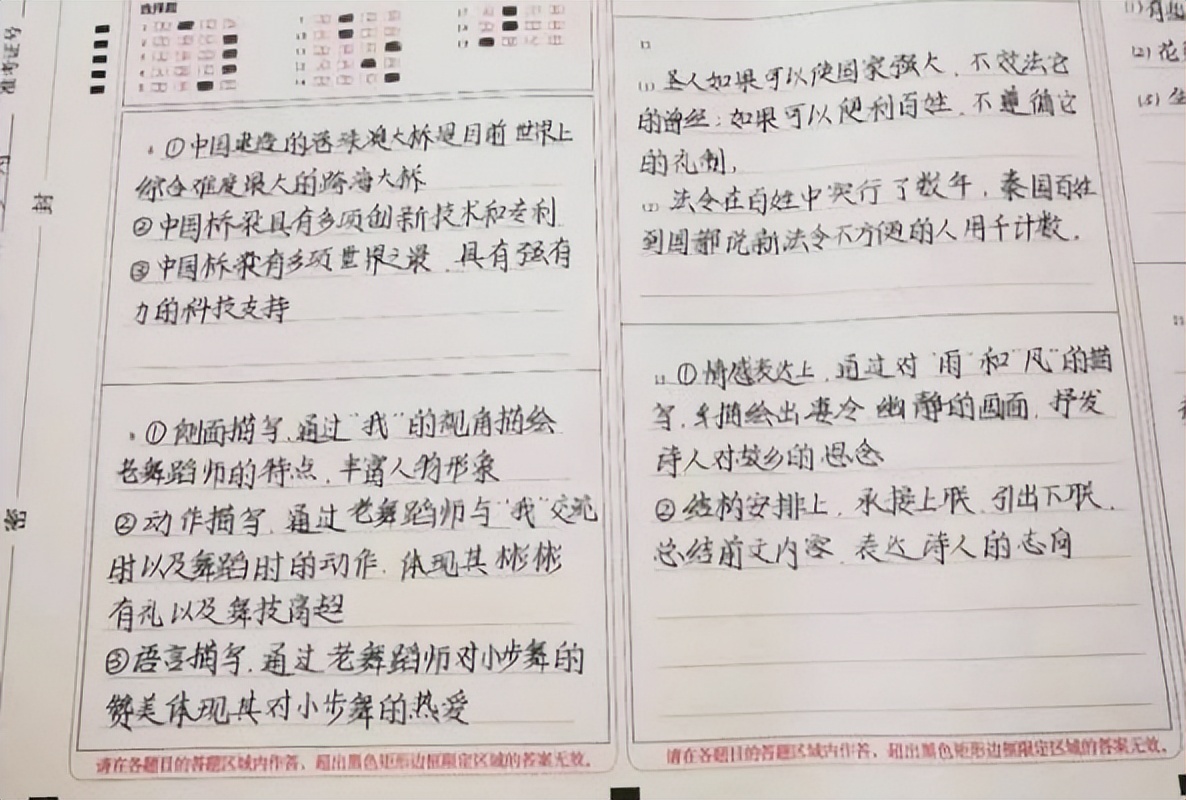 准考证号
封
密
选择题
①中国建造的港珠澳大桥是目前世界上
综合难度最大的跨海大桥
②中国桥梁具有多项创新技术和专利
③中国桥梁有多项世界之最,具有强有
力的科技支持
①侧面描写,通过"我"的视角描绘
老舞蹈师的特点,丰富人物形象
②动作描写,通过老舞蹈师与"我"交流
时以及舞蹈时的动作,体现其彬彬
有礼以及舞技高超
③语言描写,通过老舞蹈师对小步舞的
赞美体现其对小步舞的热爱
请在各题目的答题区域内作答,超出黑色矩形边框限定区域的答案无效。
12
(1)圣人如果可以使国家强大,不效法它
的曾经;如果可以便利百姓,不遵循它
的礼制,
(2)法令在百姓中实行了数年,秦国百姓
到国都说新法令不方便的人用千计数。
①情感表达上,通过对"雨"和"风"的描
写,描绘出凄冷幽静的画面,抒发
诗人对故乡的思念
②结构安排上,承接上联,引出下联,
总结前文内容,表达诗人的志向
请在各题目的答题区域内作答,超出黑色矩形边框限定区域的答案无效。
(1)有
(2)花
(3)